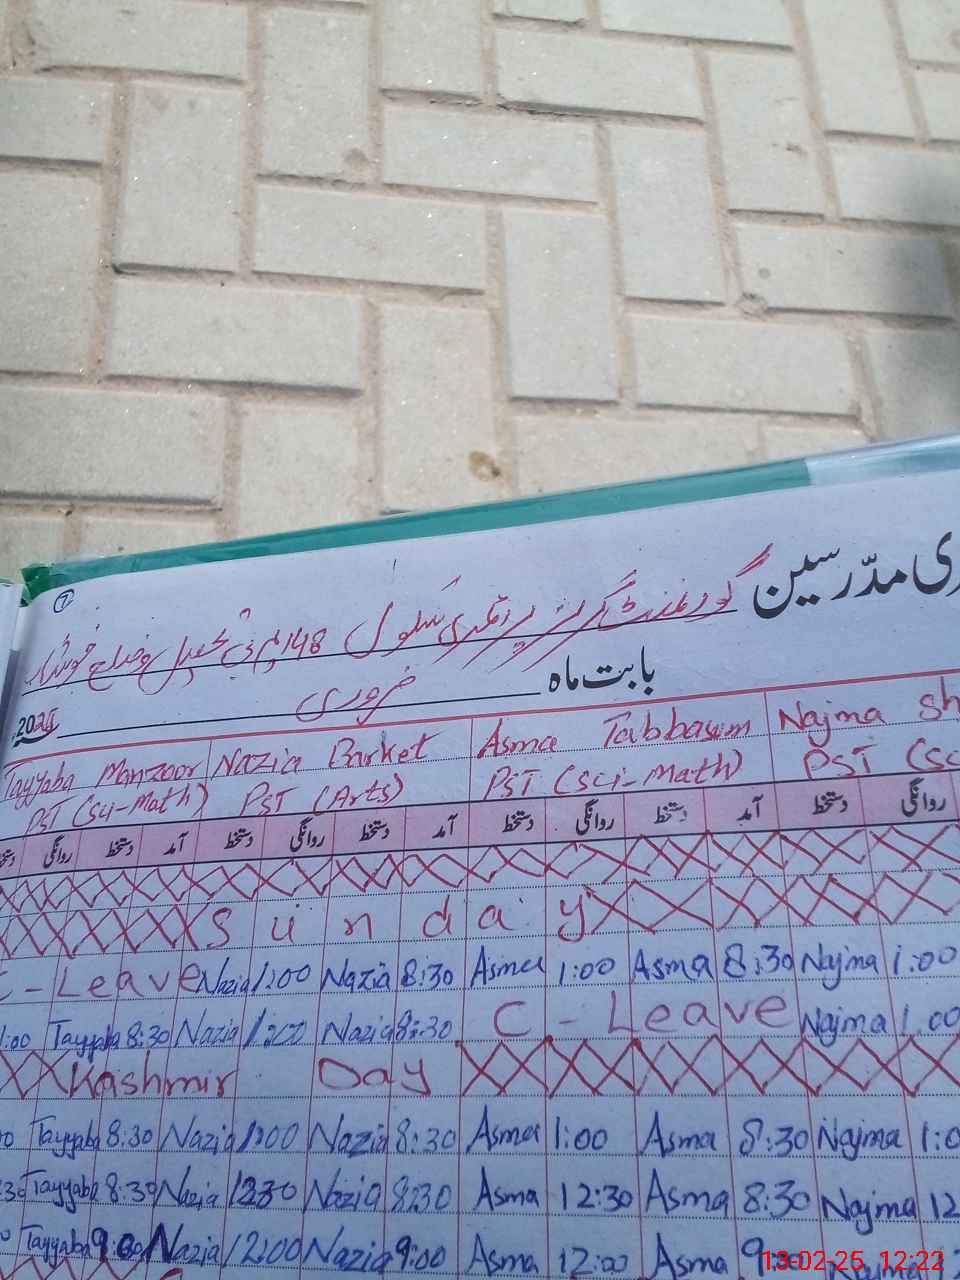 7
ری مدرسین گورنمنٹ گرلز پرائمری سکول 148 تحصیل و ضلع
بابت ماہ فروری 2025
Tayyaba Manzoor Nazia Barket Asma Tabbasum Najma Sh
PST (Sci-Math) PST (Arts) PST (Sci-Math) PST (Sc
روانگی دستخط آمد دستخط روانگی دستخط آمد دستخط روانگی دستخط آمد دستخط روانگی
Sunday
C-Leave Nazia 1:00 Nazia 8:30 Asma 1:00 Asma 8:30 Najma 1:00
1:00 Tayyaba 8:30 Nazia 1:00 Nazia 8:30 C-Leave Najma 1:00
Kashmir Day
Tayyaba 8:30 Nazia 1:00 Nazia 8:30 Asma 1:00 Asma 8:30 Najma 1:0
30 Tayyaba 8:30 Nazia 1230 Nazia 8:30 Asma 12:30 Asma 8:30 Najma 12
Tayyaba 9:00 Nazia 12:00 Nazia 9:00 Asma 12:00 Asma
13-02-25 12:22